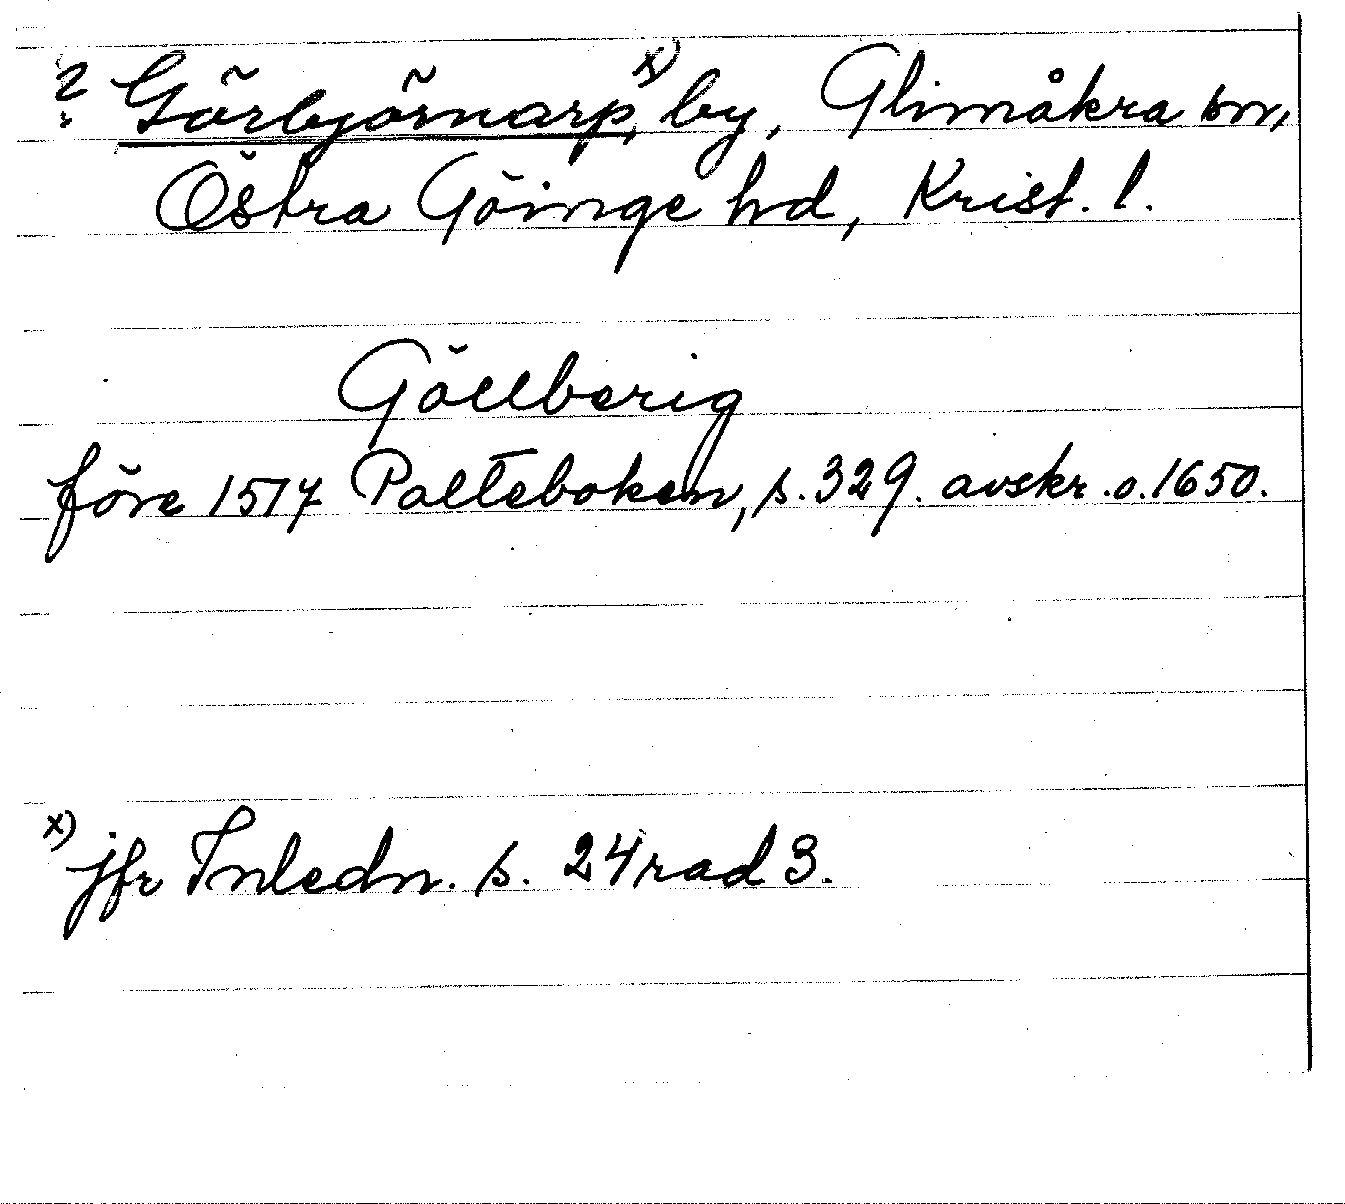 ? Görbjörnarp, x) by, Glimåkra sn,
Östra Göinge hd, Krist. l.
Göllberig
före 1517 Palteboken, s. 329. avskr. o. 1650.
x) jfr Inledn. s. 24 rad 3.